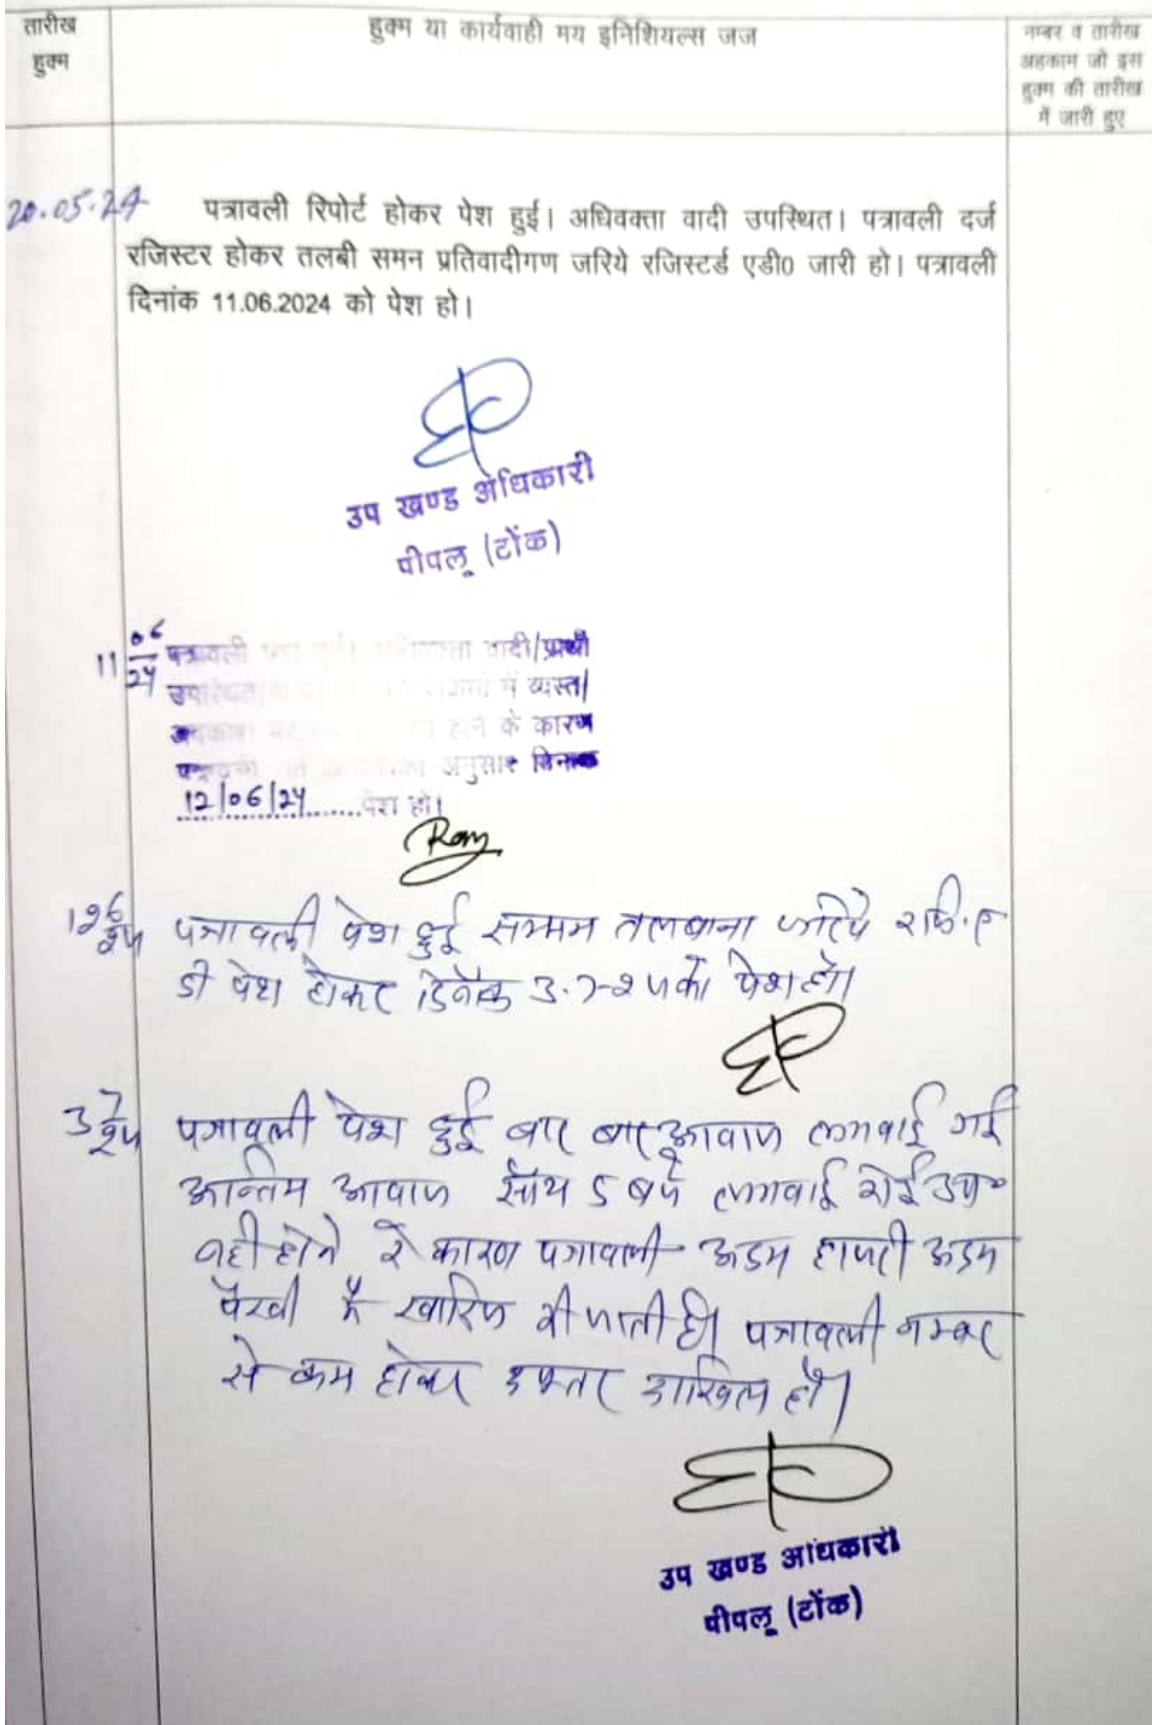 तारीख
हुक्म
हुक्म या कार्यवाही मय इनिशियल्स जज
नम्बर व तारीख
अहकाम जो इस
हुक्म की तारीख
में जारी हुए
20.05.24 पत्रावली रिपोर्ट होकर पेश हुई। अधिवक्ता वादी उपस्थित। पत्रावली दर्ज
रजिस्टर होकर तलबी समन प्रतिवादीगण जरिये रजिस्टर्ड एडी0 जारी हो। पत्रावली
दिनांक 11.06.2024 को पेश हो।
उप खण्ड अधिकारी
पीपलू (टोंक)
11 06/24 पत्रावली वादी/प्रार्थी
में व्यस्त/
होने के कारण
अनुसार दिनांक
12/06/24 पेश हो।
12 6/24 पत्रावली पेश हुई सम्मन तलबाना जरिये रजि. ए
डी पेश होकर दिनांक 3-7-24 को पेश हो।
3 7/24 पत्रावली पेश हुई बार बार आवाज लगवाई गई
अन्तिम आवाज सांय 5 बजे लगवाई कोई उप०
नही होने के कारण पत्रावली अदम हाजरी अदम
पैरवी में खारिज की जाती है। पत्रावली नम्बर
से कम होकर दफ्तर दाखिल हो।
उप खण्ड अधिकारी
पीपलू (टोंक)